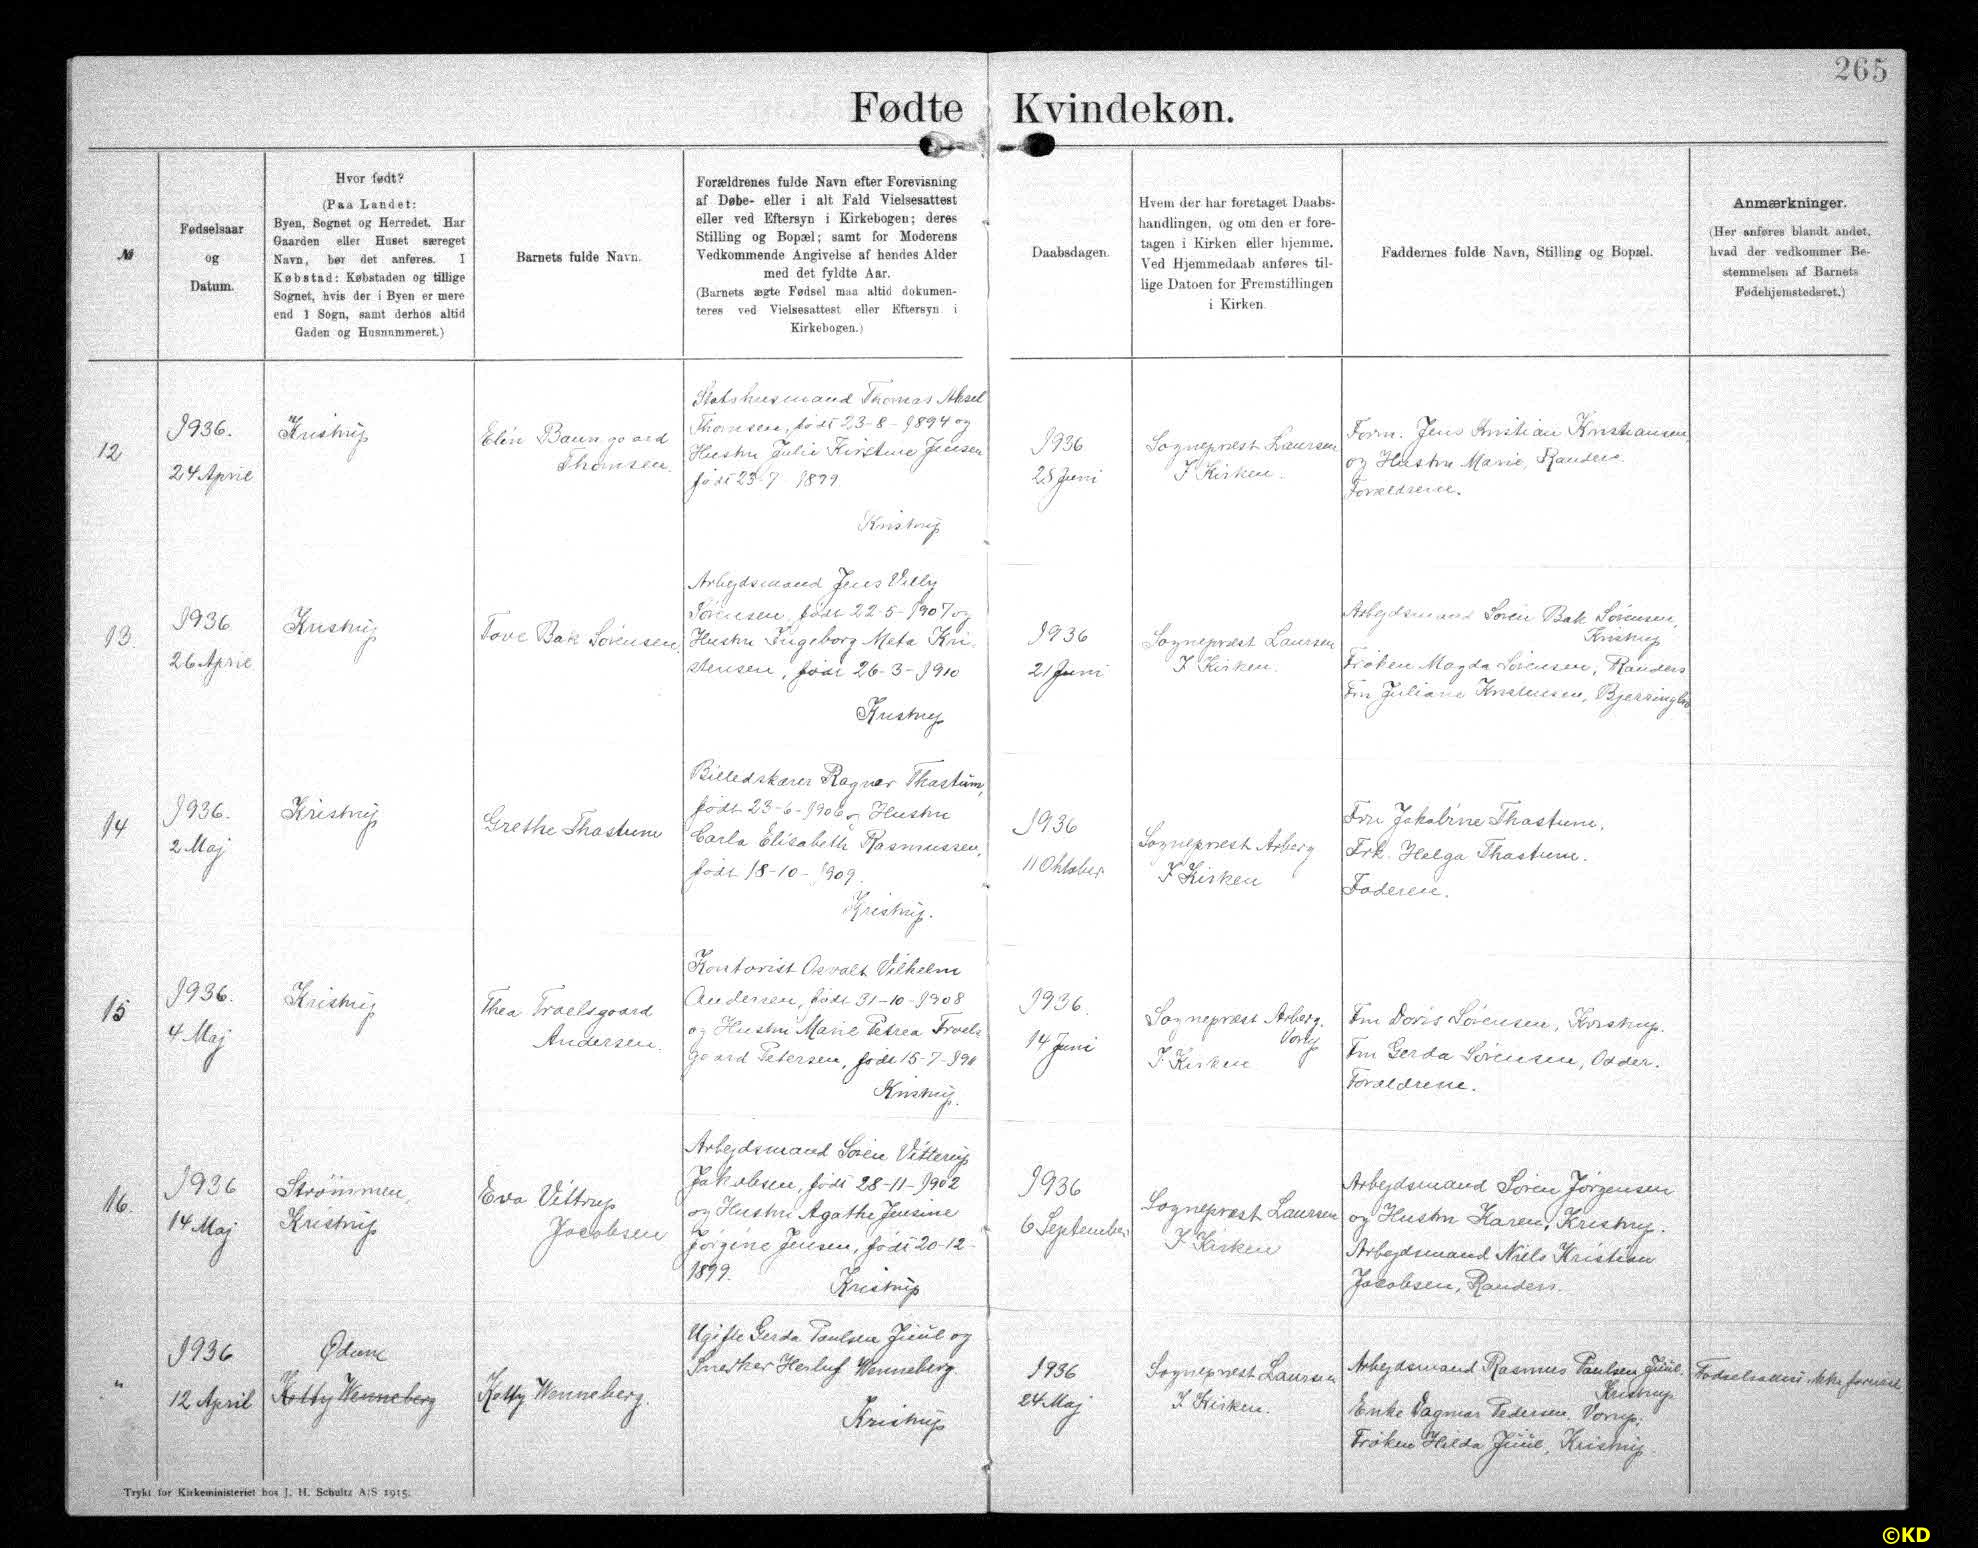 265
Fødte Kvindekøn.
№
Fødselsaar
og
Datum.
Hvor født?
(Paa Landet:
Byen, Sognet og Herredet. Har
Gaarden eller Huset særeget
Navn, bør det anføres. I
Købstad: Købstaden og tillige
Sognet, hvis der i Byen er mere
end 1 Sogn, samt derhos altid
Gaden og Husnummeret.)
Barnets fulde Navn.
Forældrenes fulde Navn efter Forevisning
af Døbe- eller i alt Fald Vielsesattest
eller ved Eftersyn i Kirkebogen; deres
Stilling og Bopæl; samt for Moderens
Vedkommende Angivelse af hendes Alder
med det fyldte Aar.
(Barnets ægte Fødsel maa altid dokumen-
teres ved Vielsesattest eller Eftersyn i
Kirkebogen.)
Daabsdagen.
Hvem der har foretaget Daabs-
handlingen, og om den er fore-
tagen i Kirken eller hjemme.
Ved Hjemmedaab anføres til-
lige Datoen for Fremstillingen
i Kirken.
Faddernes fulde Navn, Stilling og Bopæl.
Anmærkninger.
(Her anføres blandt andet,
hvad der vedkommer Be-
stemmelsen af Barnets
Fødehjemstedsret.)
12
1936.
24 April
Kristrup
Elin Baungaard
Thomsen.
Statshusmand Thomas Aksel
Thomsen, født 23-8-1894 og
Hustru Julie Kirstine Jensen
født 23-7 1899.
Kristrup
1936
28 Juni
Sognepræst Laursen
I Kirken.
Form. Jens Kristian Kristiansen
og Hustru Marie, Randers.
Forældrene.
13.
1936.
26 April
Kristrup
Tove Bak Sørensen.
Arbejdsmand Jens Villy
Sørensen, født 22-5-1907 og
Hustru Ingeborg Meta Kri-
stensen, født 26-3-1910
Kristrup
1936
21 Juni
Sognepræst Laursen
I Kirken.
Arbejdsmand Søren Bak Sørensen,
Kristrup
Frøken Magda Sørensen, Randers
Fru Juliane Kristensen, Bjerringbro
14
1936.
2 Maj
Kristrup
Grethe Thastum
Billedskærer Ragnar Thastum,
født 23-6-1906 og Hustru
Carla Elisabeth Rasmussen,
født 18-10-1909.
Kristrup.
1936
11 Oktober
Sognepræst Arberg
I Kirken
Fru Jakobine Thastum.
Frk. Helga Thastum.
Faderen.
15
1936.
4 Maj
Kristrup
Thea Troelsgaard
Andersen.
Kontorist Osvalt Vilhelm
Andersen, født 31-10-1908
og Hustru Marie Petrea Troels-
gaard Petersen, født 15-7-1911
Kristrup.
1936.
14 Juni
Sognepræst Arberg.
Vorup
I Kirken
Fru Doris Sørensen, Kristrup.
Fru Gerda Sørensen, Odder.
Forældrene.
16.
1936
14 Maj
Strømmen,
Kristrup
Eva Vittrup
Jacobsen
Arbejdsmand Søren Vitterup
Jakobsen, født 28-11-1902
og Hustru Agathe Jensine
Jørgine Jensen, født 20-12-
1899.
Kristrup
1936
6 September
Sognepræst Laursen
I Kirken
Arbejdsmand Søren Jørgensen
og Hustru Karen, Kristrup.
Arbejdsmand Niels Kristian
Jacobsen, Randers.
"
1936
12 April
Ødum
Kotty Wenneberg
Kotty Wenneberg.
Ugifte Gerda Paulsen Juul og
Snedker Herluf Wenneberg.
Kristrup
1936
24 Maj
Sognepræst Laursen
I Kirken.
Arbejdsmand Rasmus Paulsen Juul.
Kristrup
Enke Dagmar Pedersen, Vorup.
Frøken Hilda Juul, Kristrup.
Fødselsattest ikke forevist.
Trykt for Kirkeministeriet hos J. H. Schultz A/S 1915.
©KD